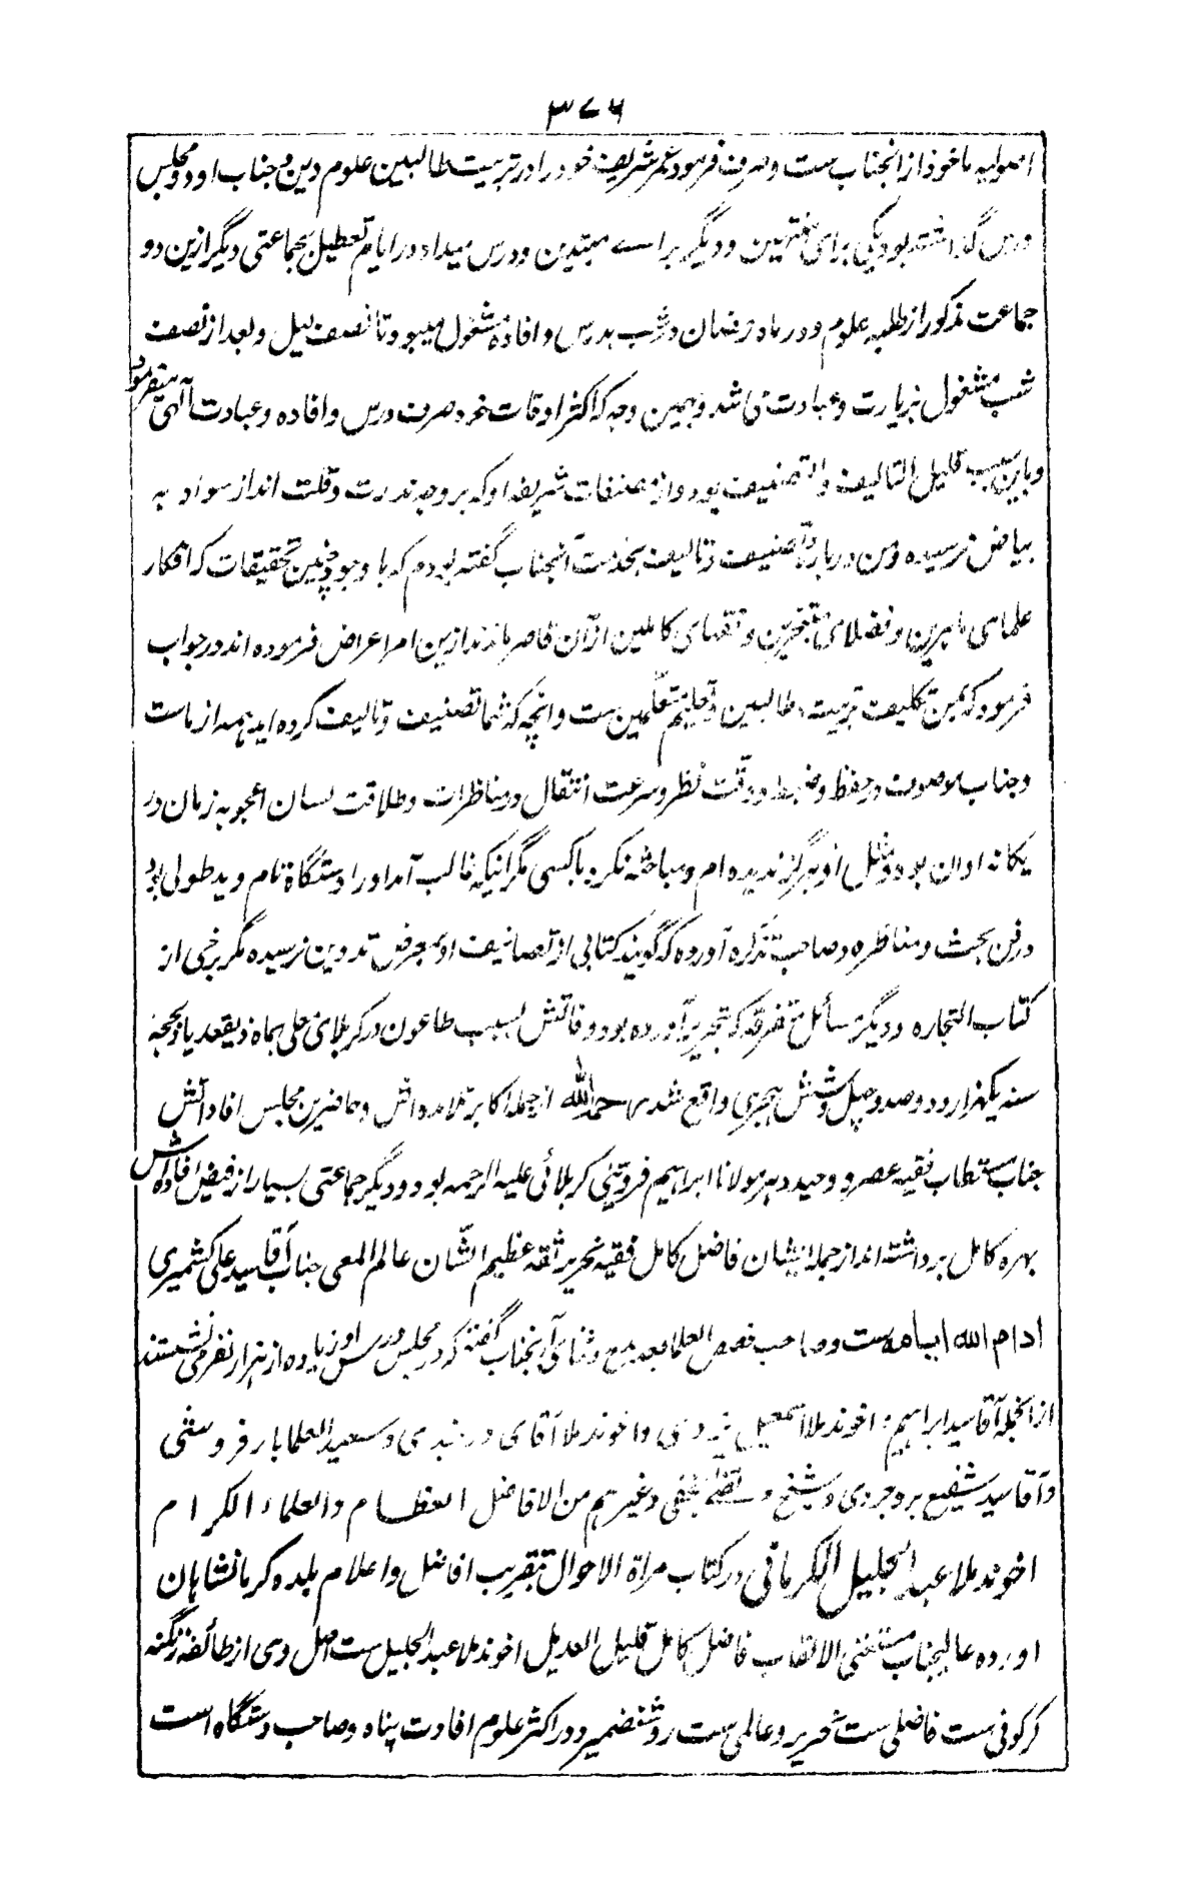 ۳۷۶
اصولیه ماخوذ از انجناب ست و صرف فرمود عمر شریف خود را در تربیت طالبین علوم دین و جناب او دو مجلس
درس گذاشته بود یکی برای منتهین و دیگر برای مبتدین و درس میداد در ایام تعطیل بجماعتی دیگر ازین دو
جماعت مذکور از طلبه علوم و در ماه رمضان در شب بدرس و افاده مشغول میبود تا نصف لیل و بعد از نصف
شب مشغول بزیارت و عبادت می شد و بهمین وجه که اکثر اوقات خود صرف درس و افاده و عبادت آلهی میفرمود
و باین سبب قلیل التالیف والتصنیف بود و از مصنفات شریفه او که بر وجه ندرت و قلت انداز سواد به
بیاض نرسیده و من درباره تصنیف و تالیف بخدمت آنجناب گفته بودم که با وجود چنین تحقیقات که افکار
علمای ماهرین و فضلای متبحرین و فقهای کاملین از آن قاصر ماندند ازین امر اعراض فرموده اند در جواب
فرمود که بمن تکلیف تربیت طالبین و تعلیم متعلمین ست و انچه که شما تصنیف و تالیف کرده اید همه از ماست
و جناب موصوف در حفظ و ضبط و دقت نظر و سرعت انتقال در مناظرات و طلاقت لسان اعجوبه زمان و
یکانه اوان بوده و مثل او هرگز ندیده ام و مباحثه نکرد با کسی مگر انیکه غالب آمد او را دستگاه تام و ید طولی بود
در فن بحث و مناظره و صاحب تذکره آورده که گویند کتابی از تصانیف او بمعرض تدوین نرسیده مگر برخی از
کتاب التجاره و دیگر مسائل متفرقه که بتحریر آورده بود و وفاتش بسبب طاعون در کربلای معلی بماه ذیقعده یا ذیحجه
سنه یکهزار و دو صد و چهل و شش هجری واقع شد رحمه الله از جمله اکابر تلامده اش و حاضرین مجلس افاداتش
جناب مستطاب فقیه عصر و وحید دهر مولانا ابراهیم قزوینی کربلائی علیه الرحمه بود و دیگر جماعتی بسیار از فیض افاداتش
بهره کامل برداشته اند از جمله ایشان فاضل کامل فقیه نحریر ثقه عظیم الشّان عالم المعی جناب آقا سید علی کشمیری
ادام الله ایامه ست و صاحب قصص العلما بعد مدح و ثنای آنجناب گفته که در مجلس درس او زیاده از هزار نفر می نشستند
از انجمله آقا سید ابراهیم و اخوند ملا اسمعیل یزدی و اخوند ملا آقای دربندی و سعید العلما بارفروشی
و آقا سید شفیع بروجردی و شیخ و غیر هم من الافاضل العظام والعلماء الکرام
اخوند ملا عبد الجلیل الکرمانی در کتاب مرآة الاحوال بتقریب افاضل و اعلام بلده کرمانشاهان
اورده عالیجناب مستغنی الالقاب فاضل کامل قلیل العدیل اخوند ملا عبد الجلیل ست اصل وی از طائفه زنگنه
کرکوئی ست فاضلی ست نحریر و عالمی ست روشنضمیر در اکثر علوم افادت پناه و صاحب دستگاه است